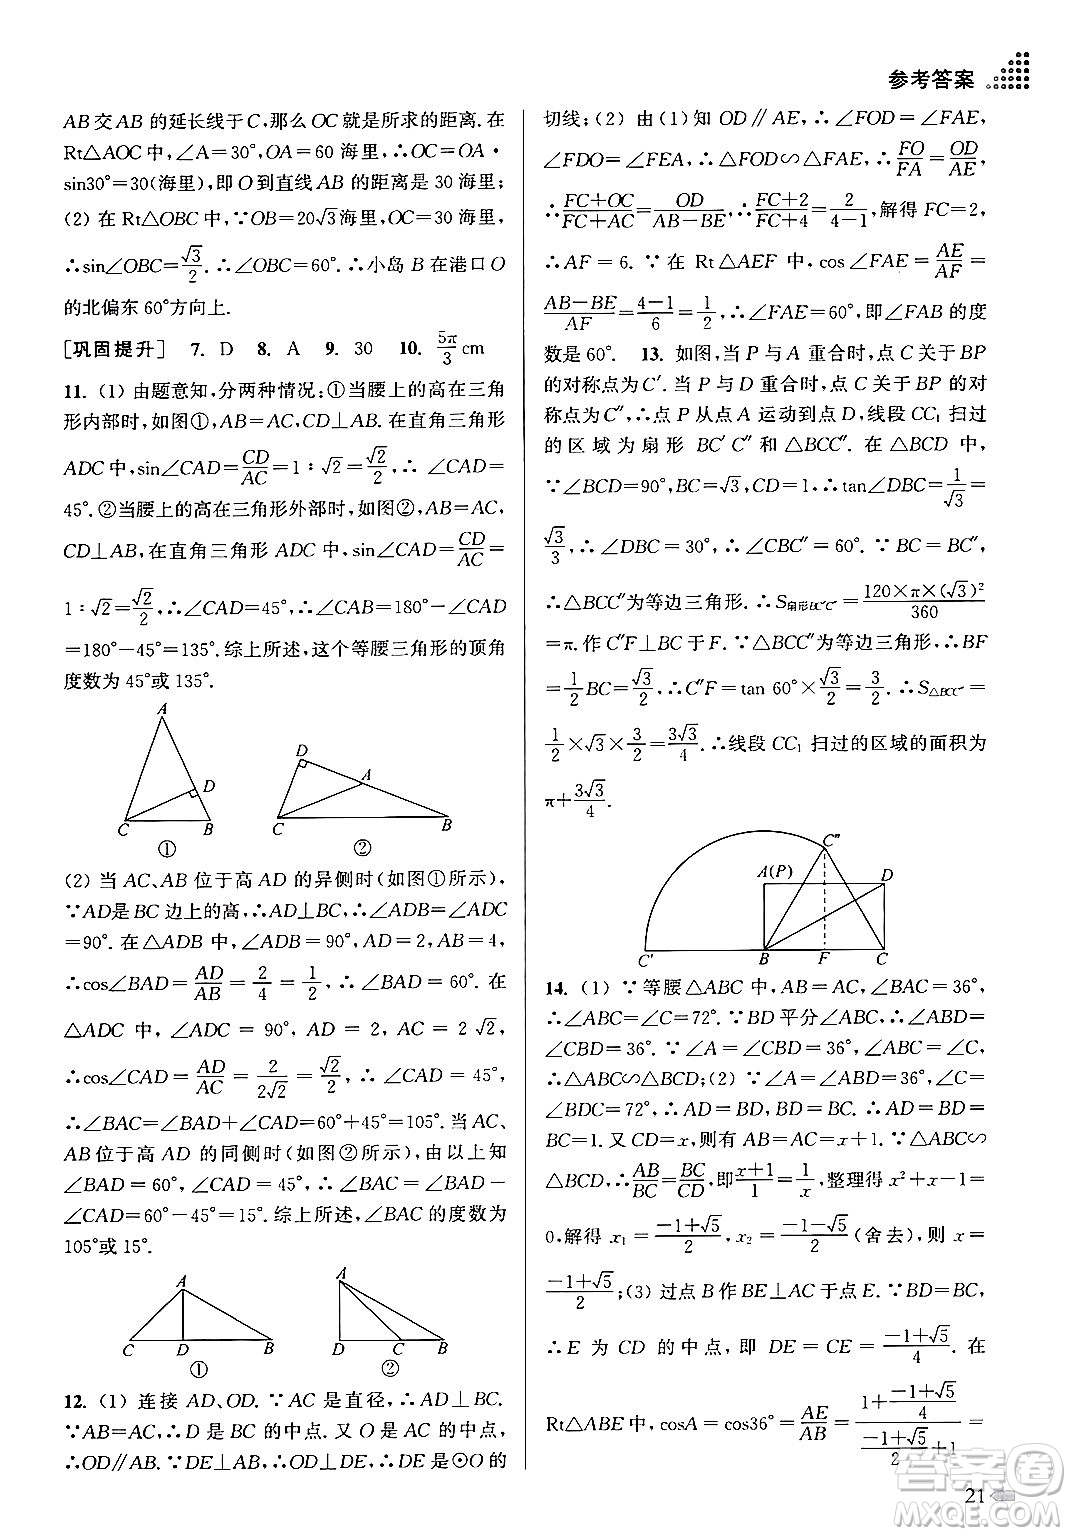 参考答案
AB交AB的延长线于C,那么OC就是所求的距离.在
Rt△AOC中,∠A=30°,OA=60海里,∴OC=OA·
sin30°=30(海里),即O到直线AB的距离是30海里;
(2) 在Rt△OBC中,∵OB=20√3海里,OC=30海里,
∴sin∠OBC=√3/2.∴∠OBC=60°.∴小岛B在港口O
的北偏东60°方向上.
[巩固提升] 7. D 8. A 9. 30 10. 5π/3 cm
11. (1) 由题意知,分两种情况:①当腰上的高在三角
形内部时,如图①,AB=AC,CD⊥AB.在直角三角形
ADC中,sin∠CAD=CD/AC=1∶√2=√2/2,∴ ∠CAD=
45°.②当腰上的高在三角形外部时,如图②,AB=AC,
CD⊥AB,在直角三角形ADC中,sin∠CAD=CD/AC=
1∶√2=√2/2,∴∠CAD=45°,∴∠CAB=180°-∠CAD
=180°-45°=135°.综上所述,这个等腰三角形的顶角
度数为45°或135°.
A
D
C
B
①
D
A
C
B
②
(2) 当AC、AB位于高AD的异侧时(如图①所示),
∵AD是BC边上的高,∴AD⊥BC,∴∠ADB=∠ADC
=90°.在△ADB中,∠ADB=90°,AD=2,AB=4,
∴cos∠BAD=AD/AB=2/4=1/2,∴∠BAD=60°.在
△ADC中,∠ADC=90°,AD=2,AC=2√2,
∴cos∠CAD=AD/AC=2/2√2=√2/2,∴∠CAD=45°,
∴∠BAC=∠BAD+∠CAD=60°+45°=105°.当AC、
AB位于高AD的同侧时(如图②所示),由以上知
∠BAD=60°,∠CAD=45°,∴∠BAC=∠BAD-
∠CAD=60°-45°=15°.综上所述,∠BAC的度数为
105°或15°.
A
C
D
B
①
A
D
C
B
②
12. (1) 连接AD、OD.∵AC是直径,∴AD⊥BC.
∵AB=AC,∴D是BC的中点.又O是AC的中点,
∴OD∥AB.∵DE⊥AB,∴OD⊥DE,∴DE是⊙O的
切线;(2) 由(1)知OD∥AE,∴∠FOD=∠FAE,
∠FDO=∠FEA,∴△FOD∽△FAE,∴FO/FA=OD/AE,
∴FC+OC/FC+AC=OD/AB-BE,∴FC+2/FC+4=2/4-1,解得FC=2,
∴AF=6.∵在Rt△AEF中,cos∠FAE=AE/AF=
AB-BE/AF=4-1/6=1/2,∴∠FAE=60°,即∠FAB的度
数是60°. 13. 如图,当P与A重合时,点C关于BP
的对称点为C′.当P与D重合时,点C关于BP的对
称点为C″,∴点P从点A运动到点D,线段CC₁扫过
的区域为扇形BC′C″和△BCC″.在△BCD中,
∵∠BCD=90°,BC=√3,CD=1,∴tan∠DBC=1/√3=
√3/3,∴∠DBC=30°,∴∠CBC″=60°.∵BC=BC″,
∴△BCC″为等边三角形.∴S扇形BC′C″=120×π×(√3)²/360
=π.作C″F⊥BC于F.∵△BCC″为等边三角形,∴BF
=1/2BC=√3/2,∴C″F=tan 60°×√3/2=3/2.∴S△BCC″=
1/2×√3×3/2=3√3/4.∴线段CC₁扫过的区域的面积为
π+3√3/4.
C″
A(P)
D
C′
B
F
C
14. (1) ∵等腰△ABC中,AB=AC,∠BAC=36°,
∴∠ABC=∠C=72°.∵BD平分∠ABC,∴∠ABD=
∠CBD=36°.∵∠A=∠CBD=36°,∠C=∠C,
∴△ABC∽△BCD;(2) ∵∠A=∠ABD=36°,∠C=
∠BDC=72°,∴AD=BD,BD=BC.∴AD=BD=
BC=1.又CD=x,则有AB=AC=x+1.∵△ABC∽
△BCD,∴AB/BC=BC/CD,即x+1/1=1/x,整理得x²+x-1=
0,解得x₁=-1+√5/2,x₂=-1-√5/2(舍去),则x=
-1+√5/2;(3) 过点B作BE⊥AC于点E.∵BD=BC,
∴E为CD的中点,即DE=CE=-1+√5/4.在
Rt△ABE中,cosA=cos36°=AE/AB=1+-1+√5/4/-1+√5/2+1=
21
答案圈
MXQE.COM